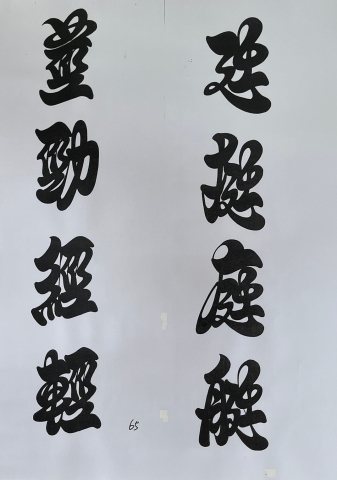 廷挺庭艇
莖勁經輕
65